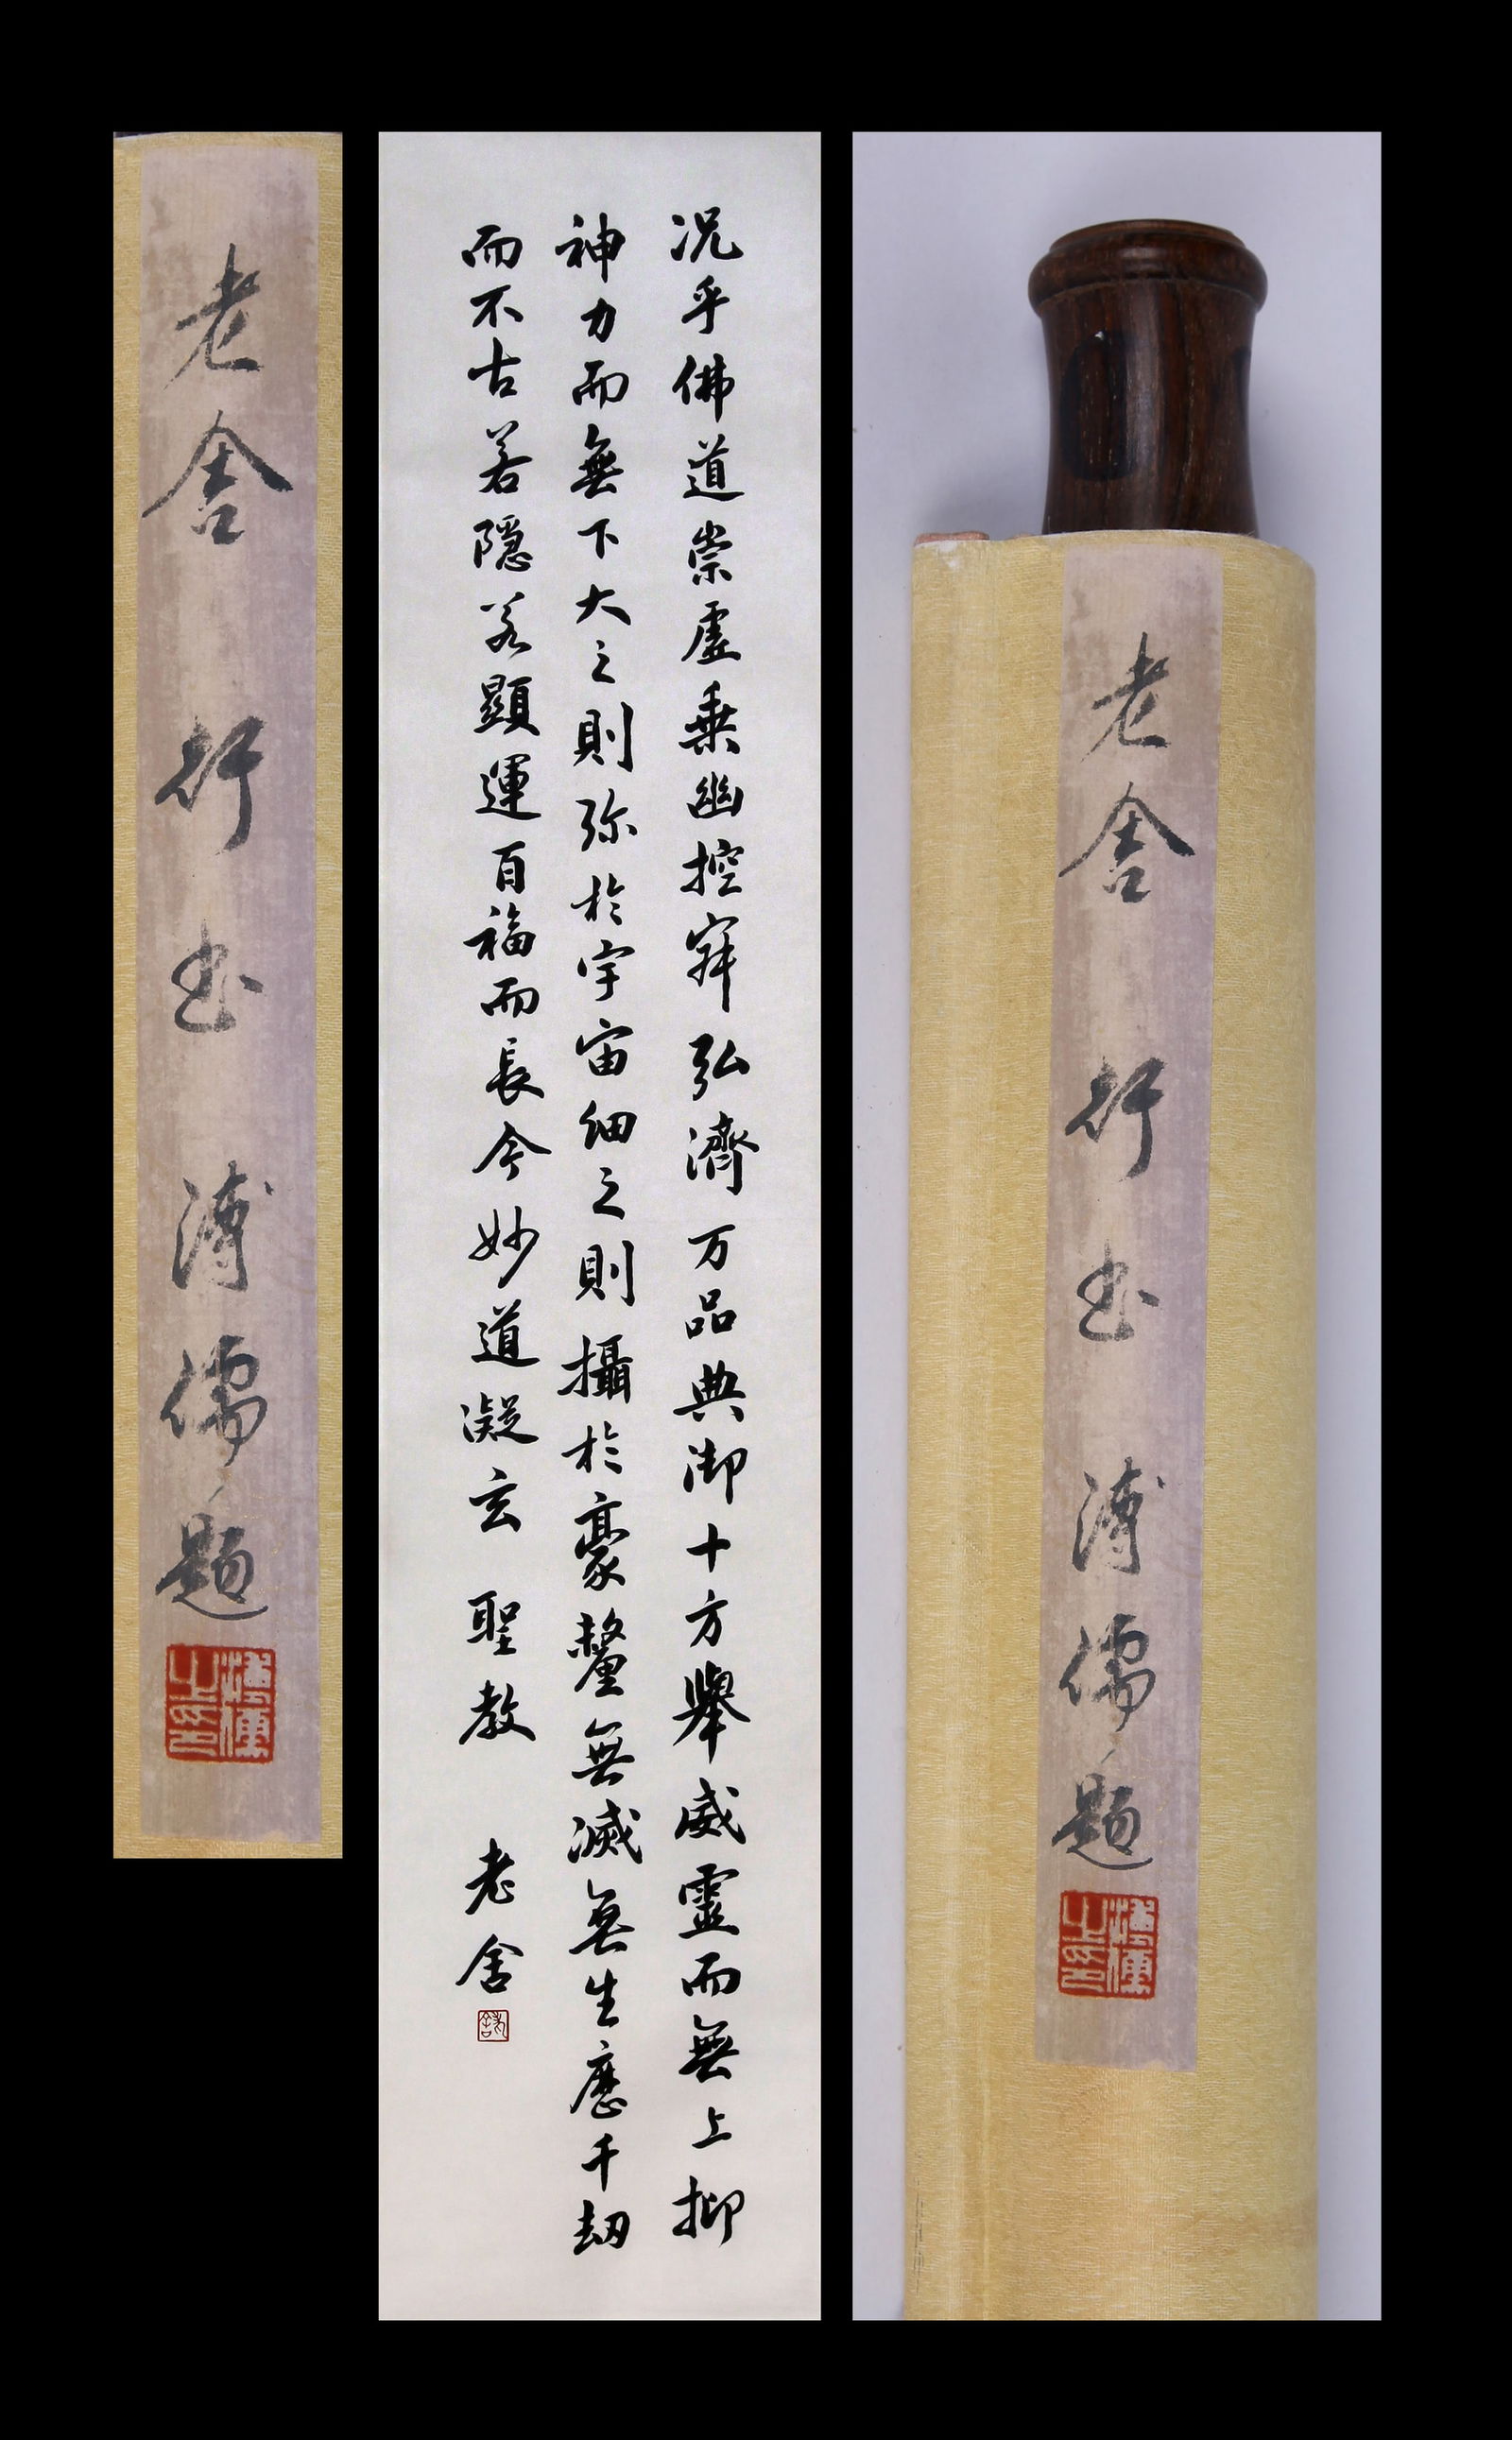 老舍 行書 溥儒題
況乎佛道崇虛乗幽控寂弘濟万品典御十方舉威靈而無上抑
神力而無下大之則弥於宇宙細之則攝於豪釐無滅無生歷千劫
而不古若隱若顯運百福而長今妙道凝玄 聖教 老舍
老舍 行書 溥儒題